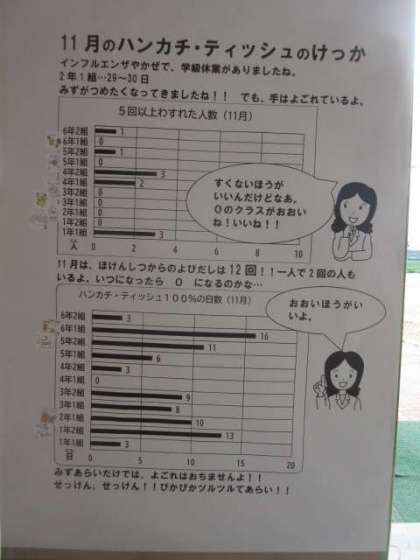 11月のハンカチ・ティッシュのけっか
インフルエンザやかぜで、学級休業がありましたね。
2年1組…29～30日
みずがつめたくなってきましたね！！ でも、手はよごれているよ。
5回以上わすれた人数（11月）
6年2組 1
6年1組 0
5年2組 1
5年1組 0
4年2組 3
4年1組 2
3年2組 0
3年1組 0
2年1組 0
1年2組 0
1年1組 3
人 0 2 4 6 8 10
すくないほうが
いいんだけどなあ。
0のクラスがおおい
ね！いいね！！
11月は、ほけんしつからのよびだしは12回！！一人で2回の人も
いるよ。いつになったら 0 になるのかな…
ハンカチ・ティッシュ100％の日数（11月）
6年2組 3
6年1組 16
5年2組 11
5年1組 6
4年2組 3
4年1組 0
3年2組 9
3年1組 8
2年1組 10
1年2組 13
1年1組 3
日 0 5 10 15 20
おおいほうがい
いよ。
みずあらいだけでは、よごれはおちませんよ！！
せっけん、せっけん！！ぴかぴかツルツルてあらい！！